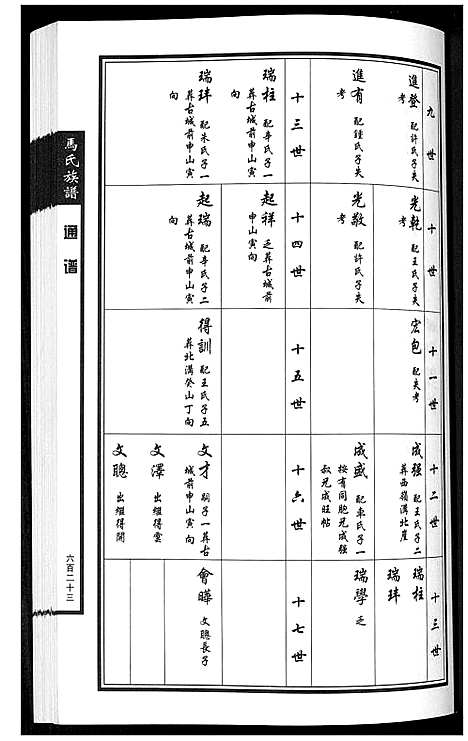 九世
進登 配許氏子失考
進有 配鍾氏子失考
十世
光乾 配王氏子失考
光敬 配許氏子失考
十一世
宏包 配失考
十二世
成强 配王氏子二葬西嶺溝北崖
成盛 配車氏子一按有同胞兄成强叔兄成旺帖
十三世
瑞柱
瑞玤
瑞學 乏
十三世
瑞柱 配辛氏子一葬古城前申山寅向
瑞玤 配朱氏子一葬古城前申山寅向
十四世
起祥 乏葬古城前申山寅向
起瑞 配辛氏子二葬古城前申山寅向
十五世
得訓 配王氏子五葬北溝癸山丁向
十六世
文才 嗣子一葬古城前申山寅向
文澤 出繼得雲
文聰 出繼得開
十七世
會曄 文聰長子
馬氏族譜
通譜
六百二十三